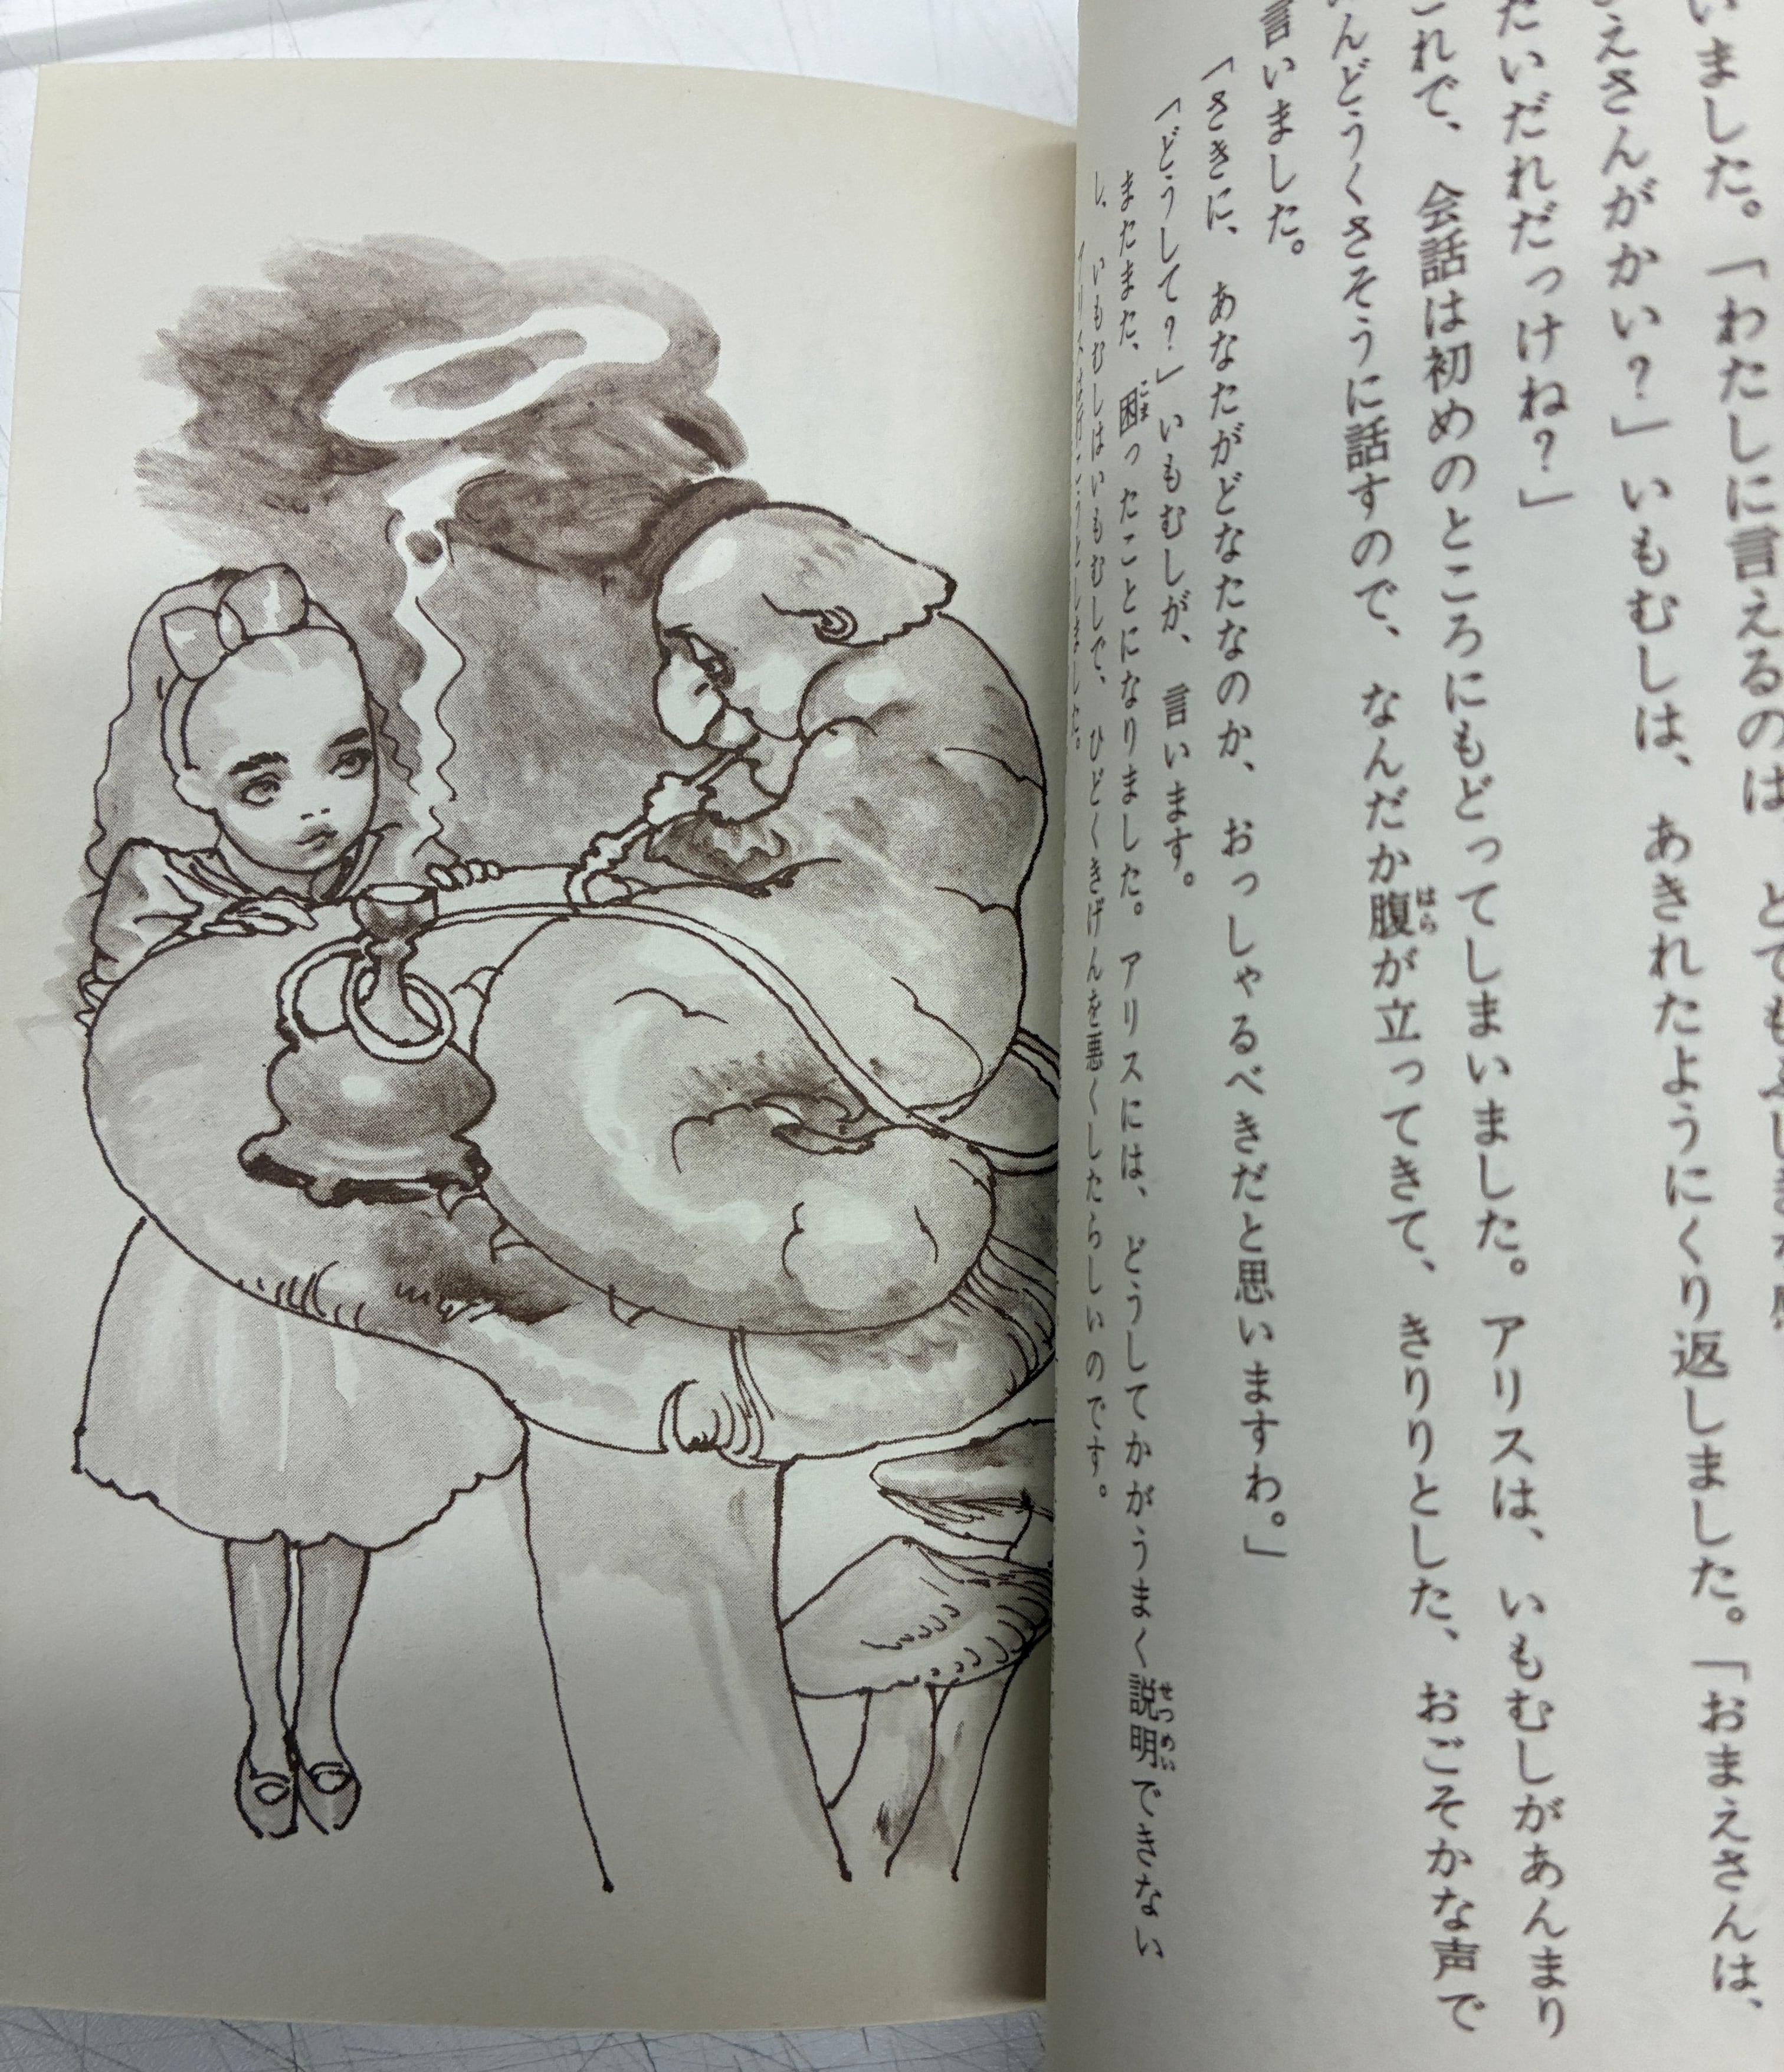 いました。「わたしに言えるのは、とても
えさんがかい？」いもむしは、あきれたようにくり返しました。「おまえさんは、
たいだれだっけね？」
これで、会話は初めのところにもどってしまいました。アリスは、いもむしがあんまり
んどうくさそうに話すので、なんだか腹が立ってきて、きりりとした、おごそかな声で
言いました。
「さきに、あなたがどなたなのか、おっしゃるべきだと思いますわ。」
「どうして？」いもむしが、言います。
またまた、困ったことになりました。アリスには、どうしてかがうまく説明できない
し、いもむしはいもむしで、ひどくきげんを悪くしたらしいのです。
アリスは行こうとしました。